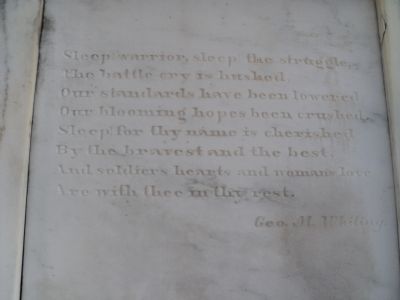 Sleep warrior, sleep the struggle,
The battle cry is hushed,
Our standards have been lowered
Our blooming hopes been crushed,
Sleep for thy name is cherished
By the bravest and the best,
And soldiers hearts and womans love
Are with thee in thy rest.
Geo. M. Whiting.